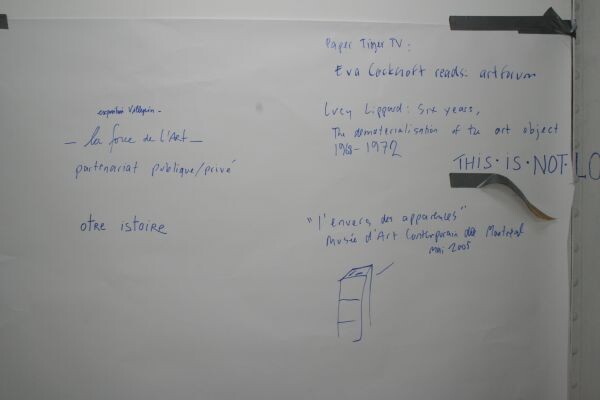 exposition Villepin -
- la force de l'Art -
partenariat publique/privé
otre istoire
Paper Tiger TV:
Eva Cockroft reads: artforum
Lucy Lippard: Six years,
The dematerialisation of the art object
1968-1972
THIS·IS·NOT·LO
"l'envers des apparences"
Musée d'Art Contemporain de Montréal
mai 2005